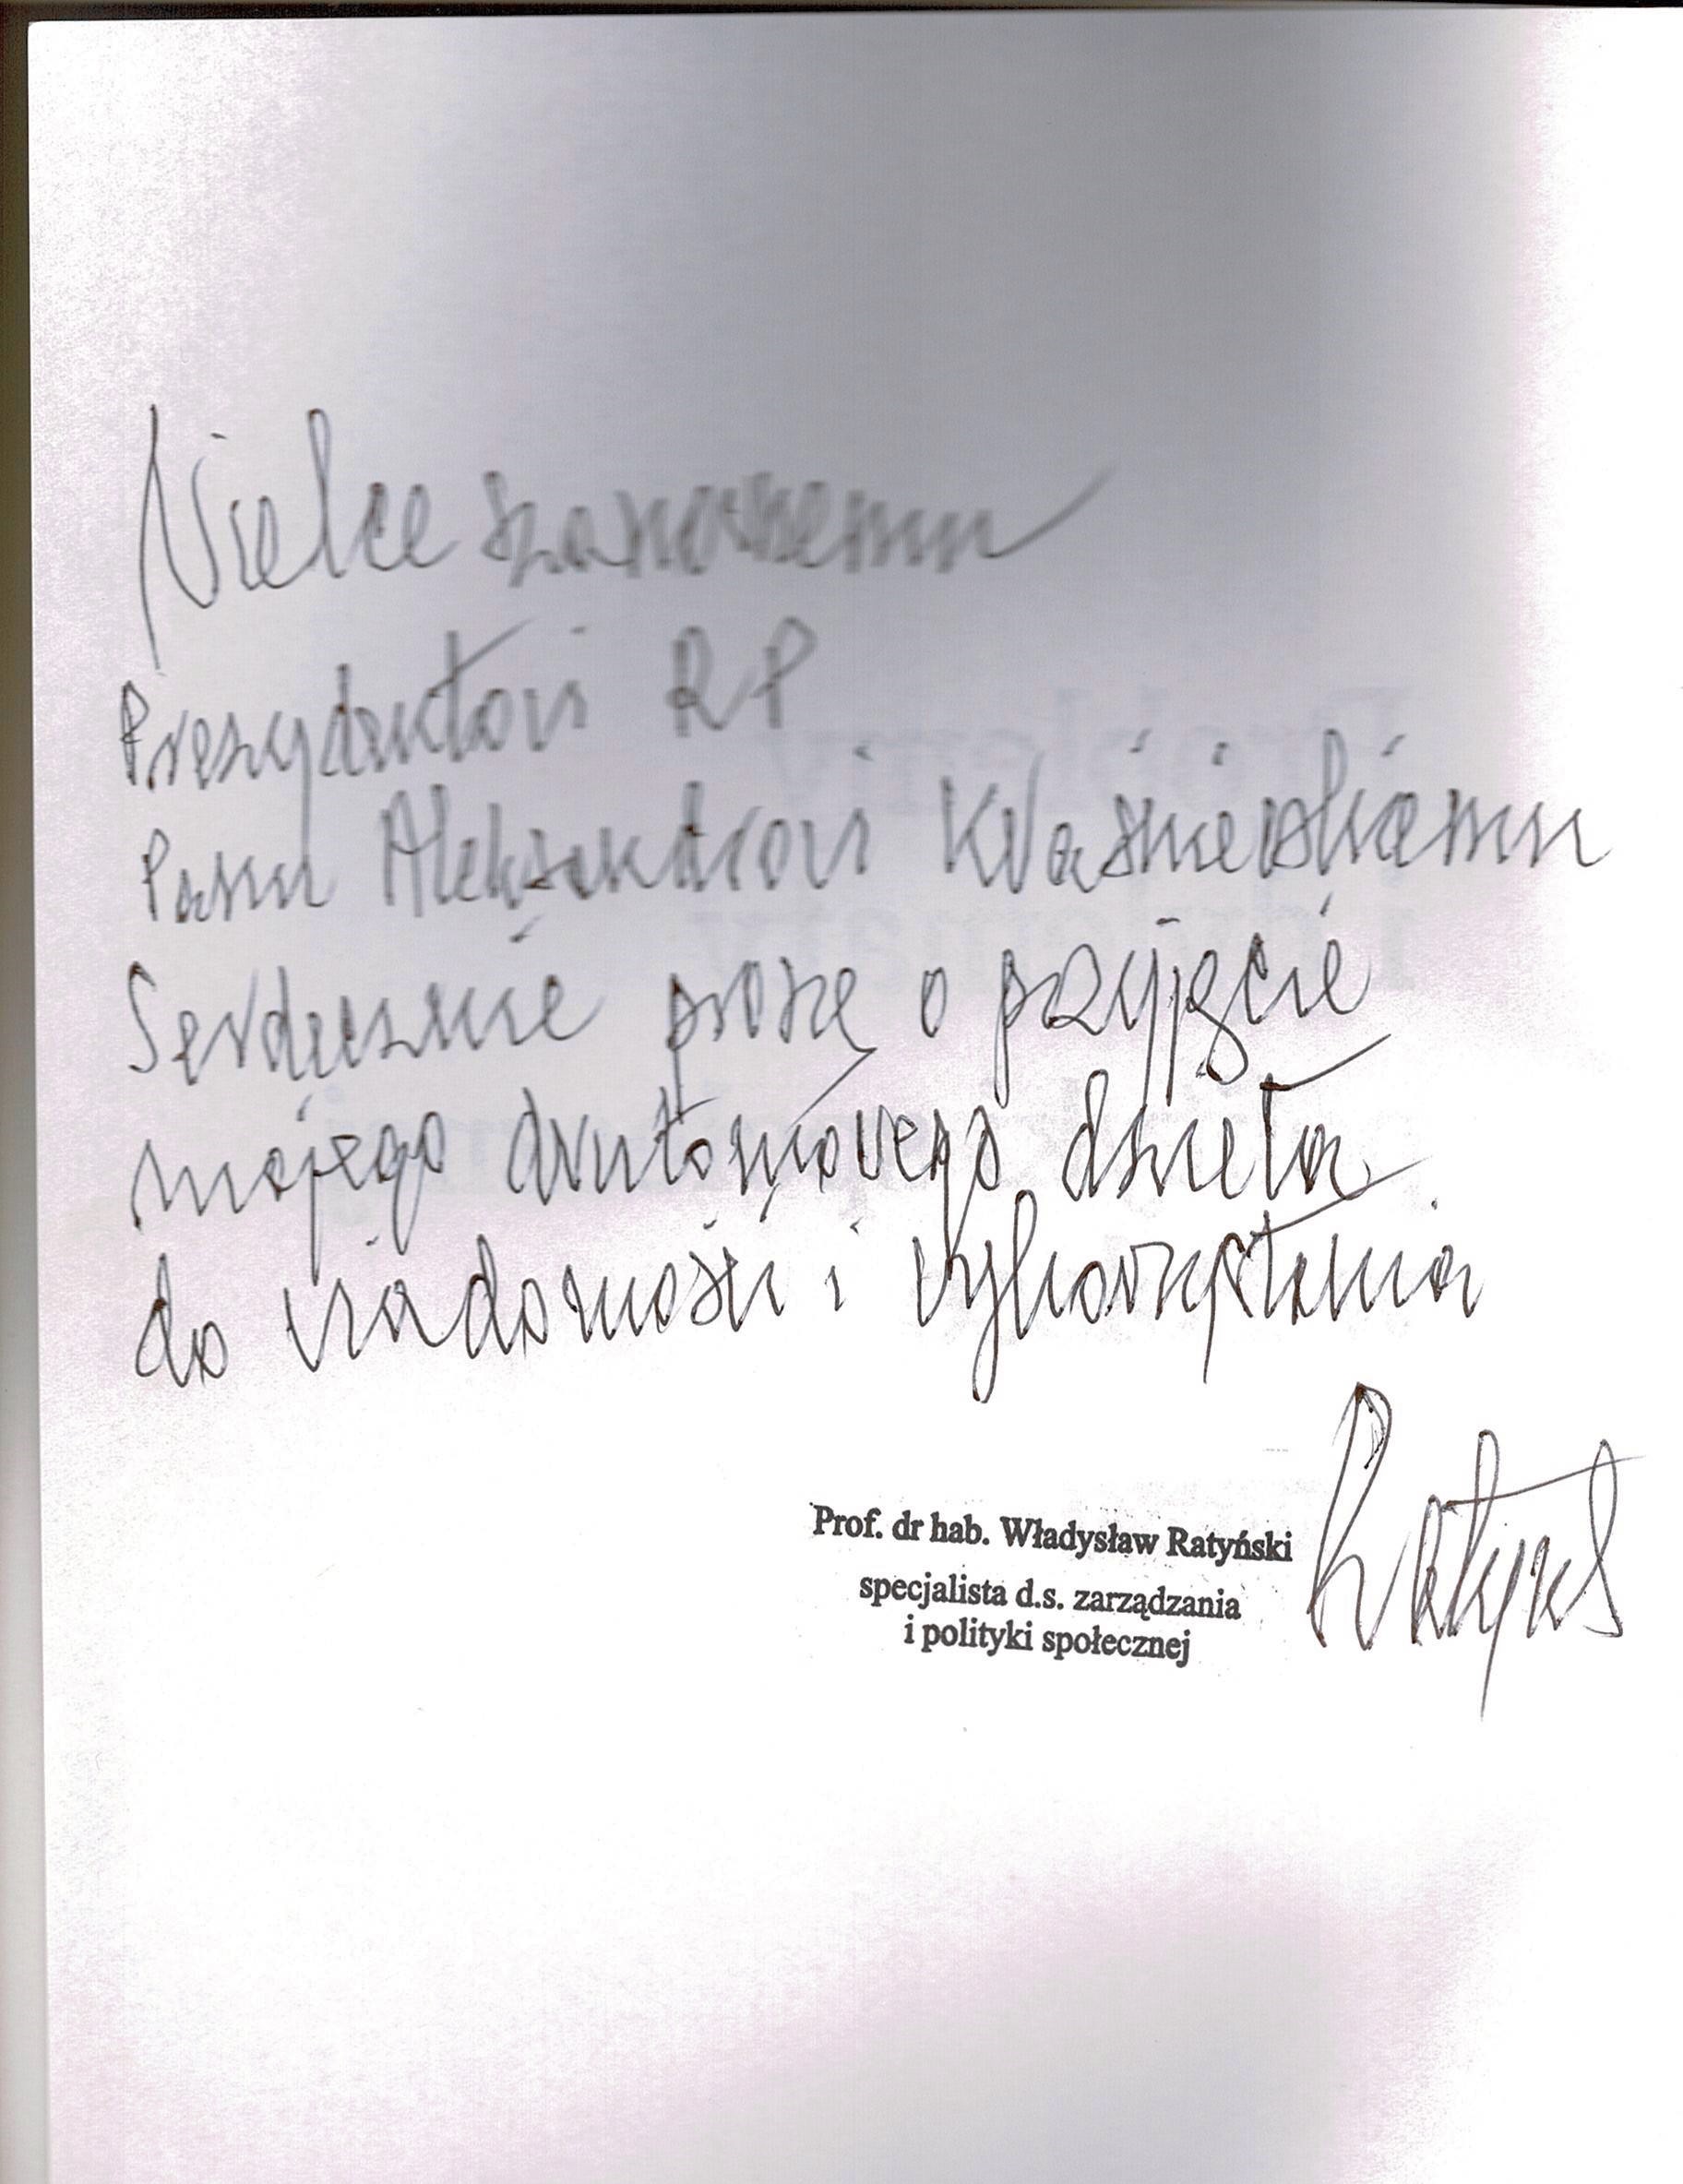 Wielce szanownemu
Prezydentowi RP
Panu Aleksandrowi Kwaśniewskiemu
Serdecznie proszę o przyjęcie
mojego dwutomowego dzieła
do wiadomości i wykorzystania
Prof. dr hab. Władysław Ratyński
specjalista d.s. zarządzania
i polityki społecznej